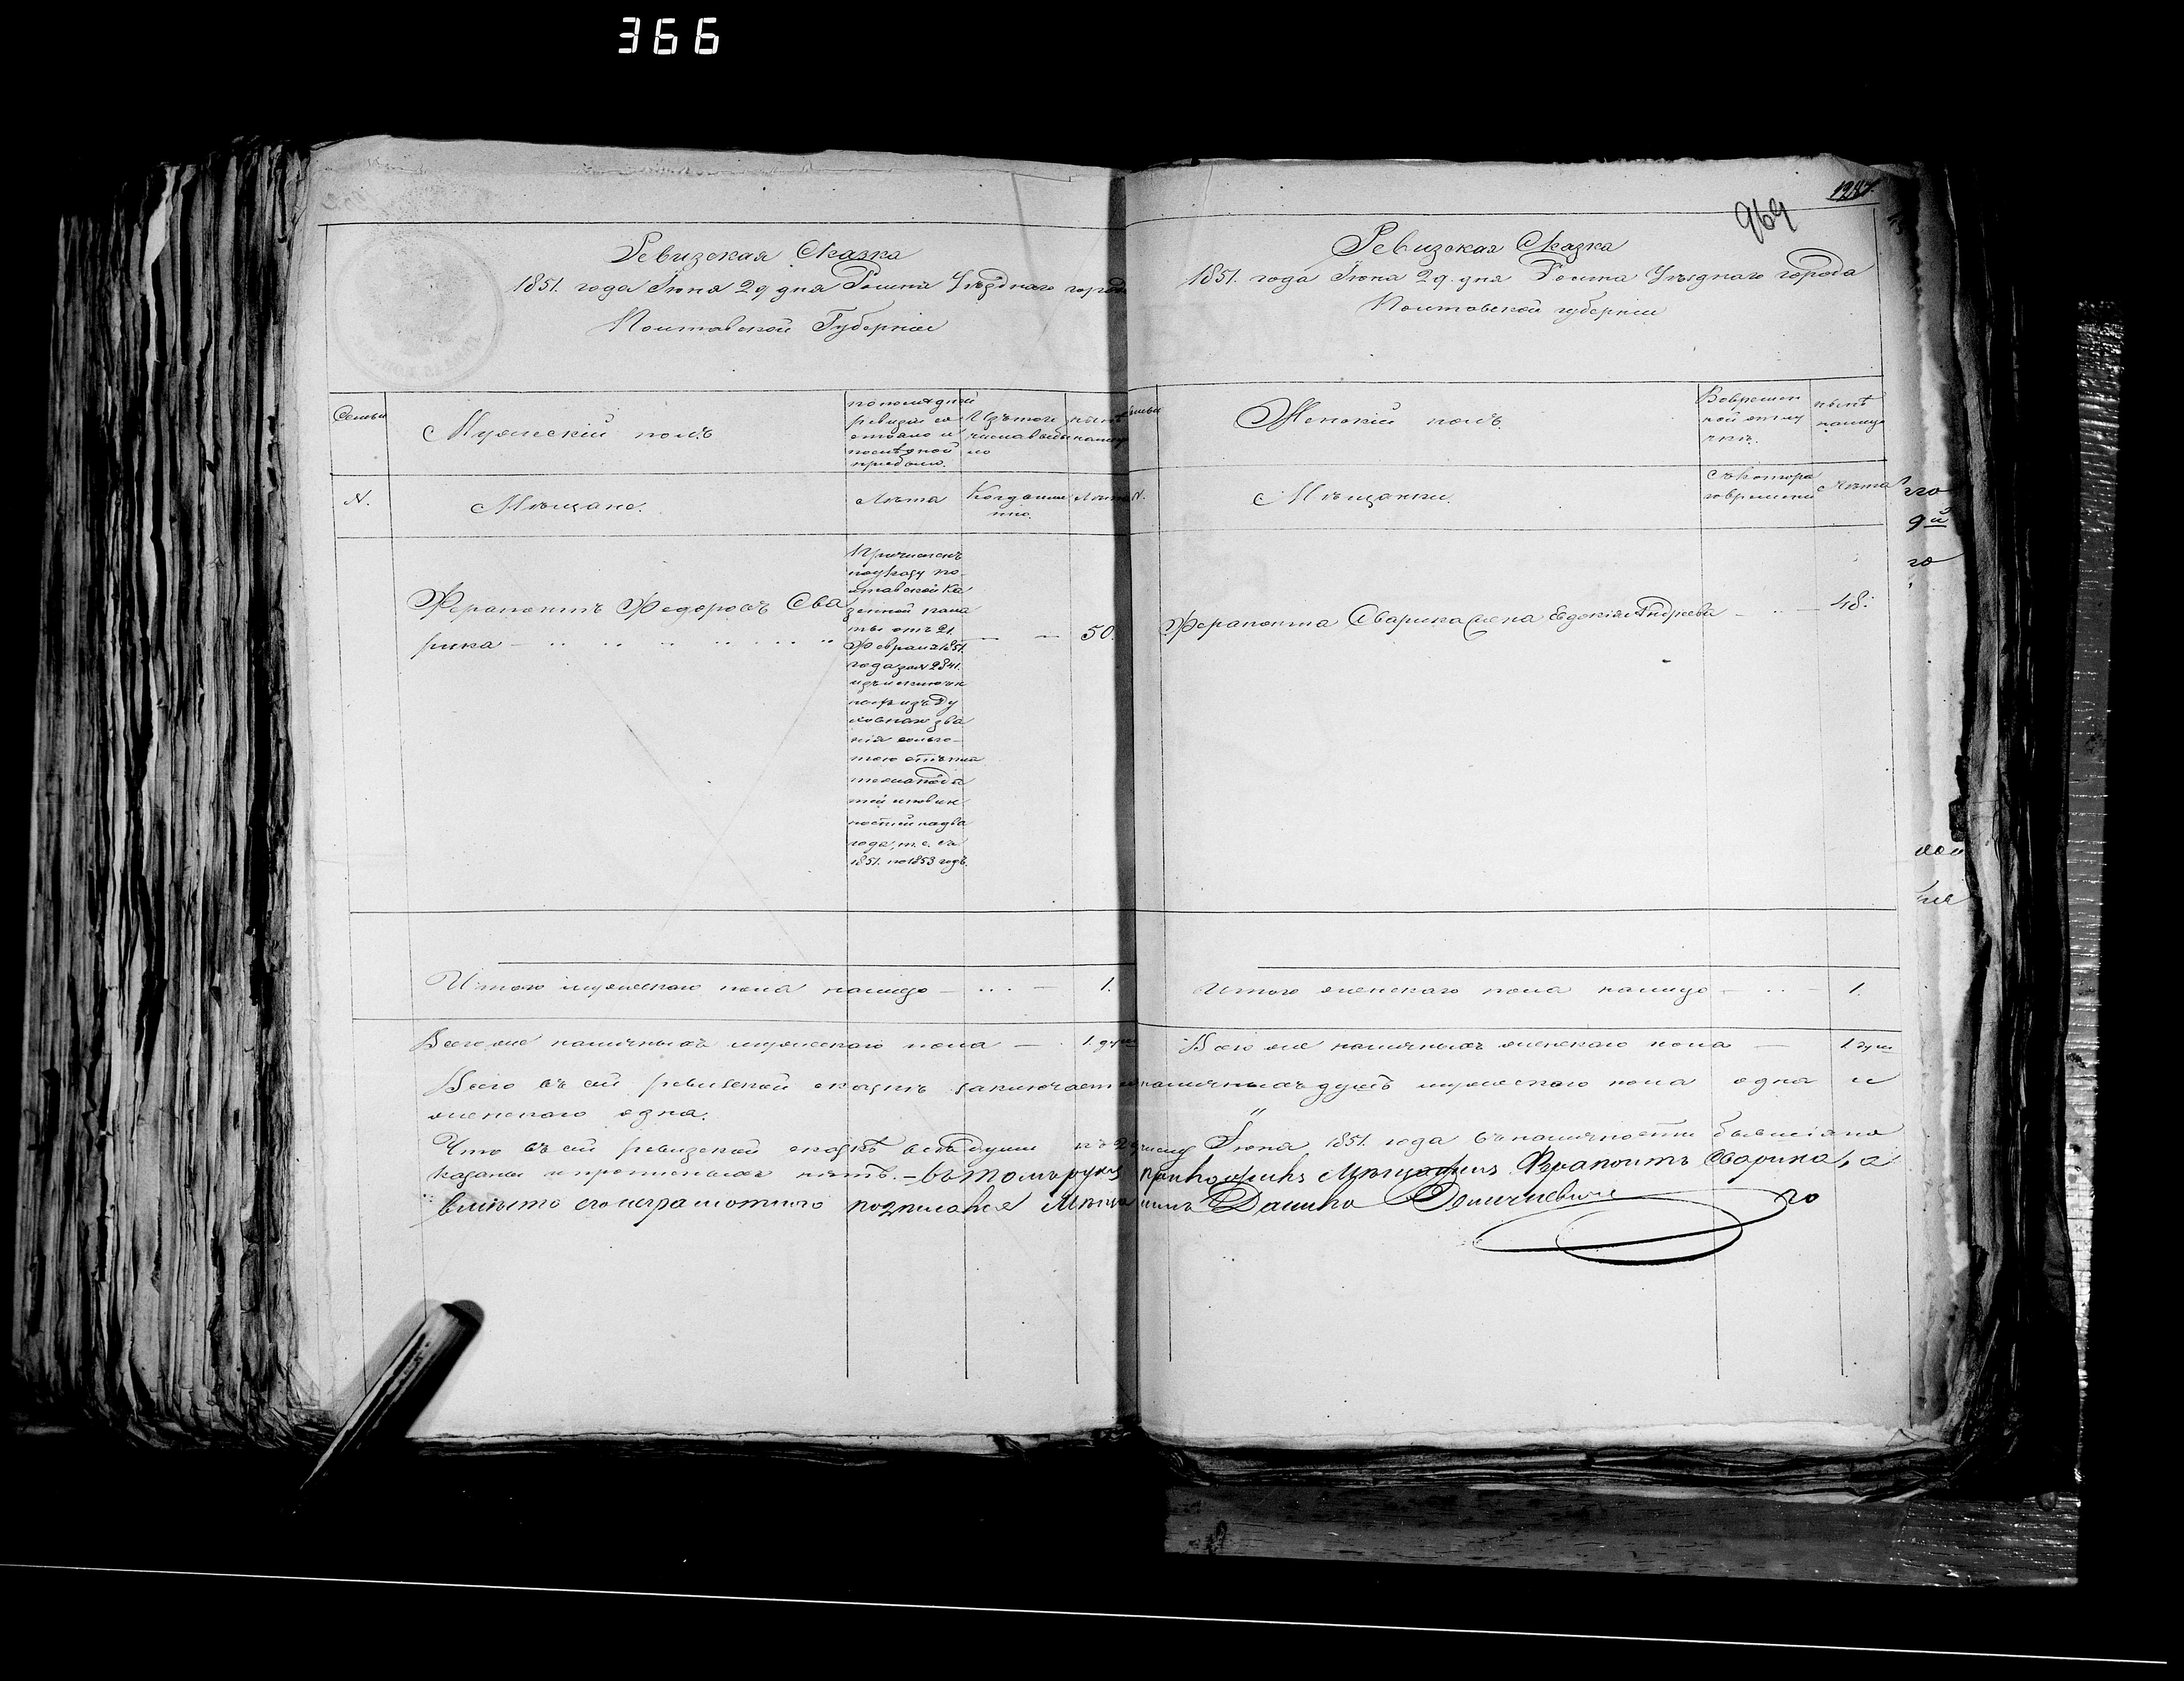 366
Ревизская Сказка
1851. года Іюня 29 дня Ромна Уѣзднаго города
Полтавской Губерніи
Семьи
Мужескій полъ
по последней
ревизіи со
стояло и
послѣ оной
прибыло.
Изъ того
числа выбы
ло
нынѣ
налицо
N.
Мѣщане.
Лѣта
Когда имен
но.
Лѣта
Ферапонтъ Федоровъ Сва
рика
50.
Причисленъ
по указу По
лтавской Ка
зенной пала
ты отъ 21.
Февраля 1851.
года за N 2841.
изъ исключен
ныхъ изъ Ду
ховнаго зва
нія сольго
тою отъ пла
тежа пода
тей и повин
ностей на два
года, т. е. съ
1851. по 1853 годъ.
Итого мужескаго пола налицо 1.
Всего же наличныхъ мужескаго пола 1. душ
964
Ревизская Сказка
1851. года Іюня 29. дня Ромна Уѣзднаго города
Полтавской губерніи
Семьи
Женскій полъ.
Вовремен
ной отлу
чкѣ.
нынѣ
налицо
N.
Мѣщанки.
Съ котора
го времени
Лѣта
Ферапонта Сварика жена Евдокія Андреева 48.
Итого женскаго пола налицо 1.
Всего же наличныхъ женскаго пола 1. душ
Всего въ сей ревизской сказкѣ заключается наличныхъ душъ мужескаго пола одна и
женскаго одна.
Что въ сей ревизской сказкѣ всѣ души къ 29 числу Іюня 1851. года въ наличности бывшія по
казаны и прописныхъ нѣтъ. – Въ томъ руку приложилъ Мѣщанинъ Ферапонтъ Сварика, а
вмѣсто его неграмотнаго подписался Мѣщанинъ Данило